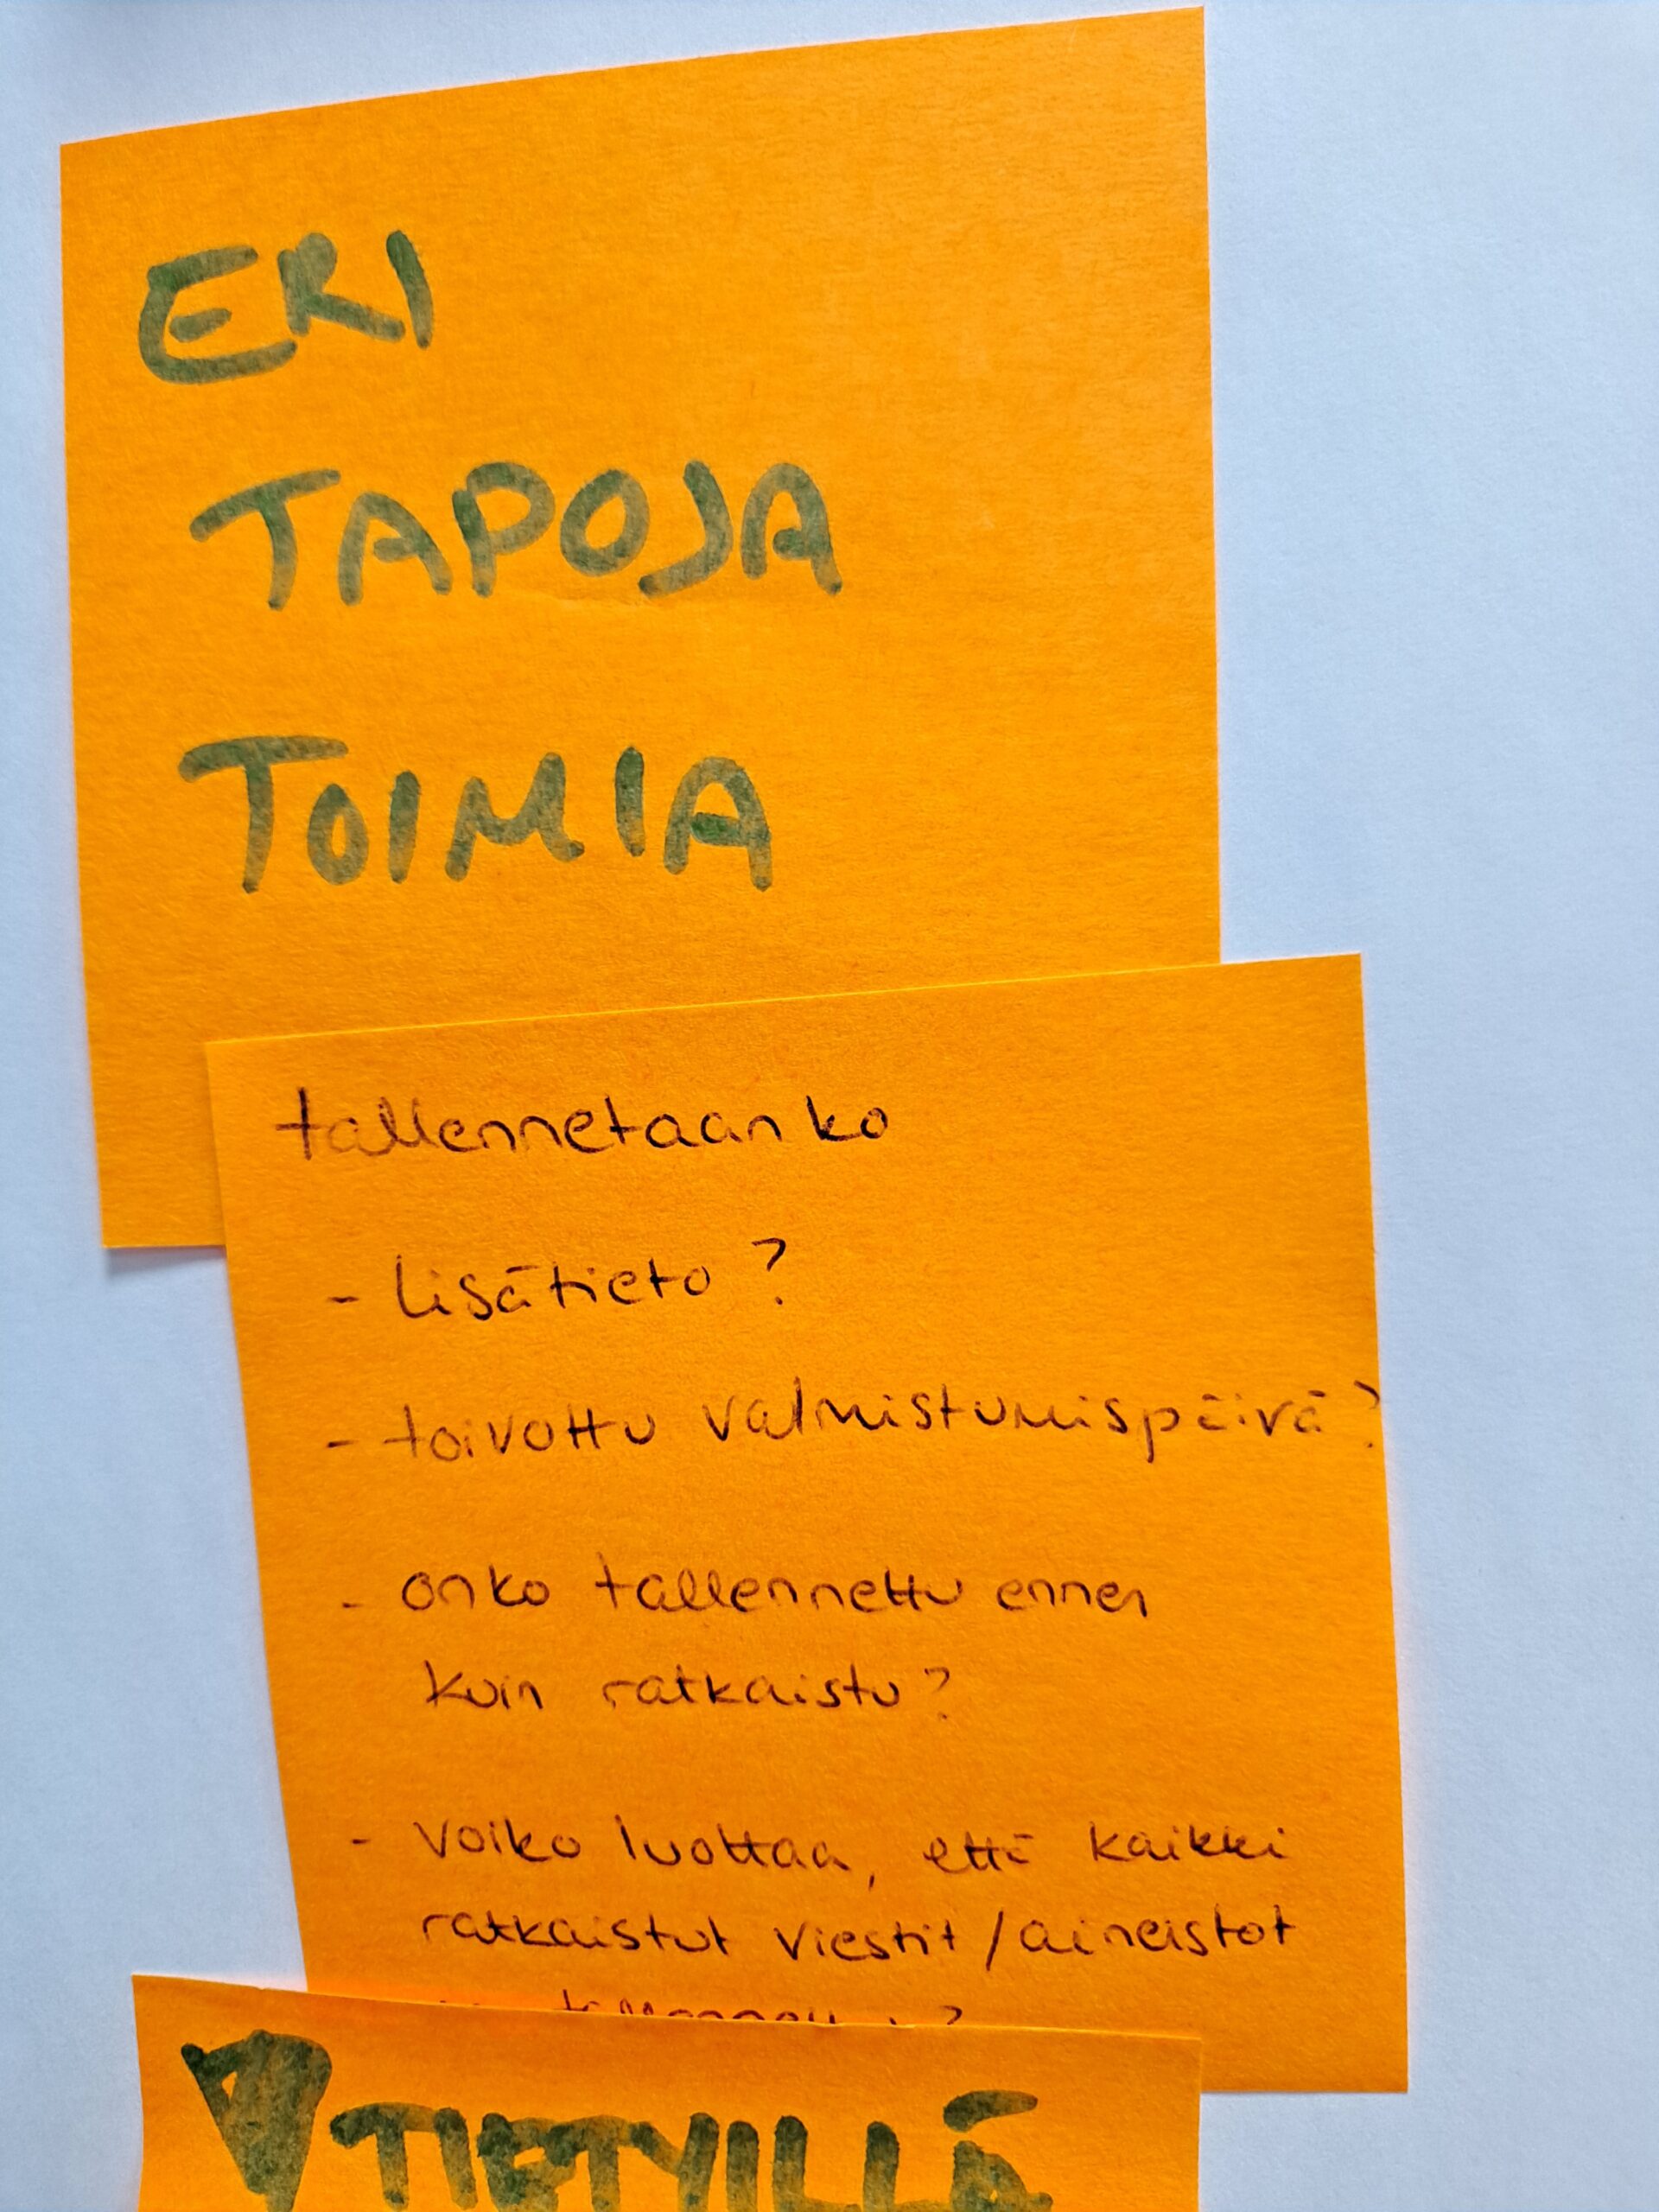 ERI
TAPOJA
TOIMIA
tallennetaanko
- Lisätieto?
- toivottu valmistumispäivä?
- onko tallennettu ennen
kuin ratkaistu?
- voiko luottaa, että kaikki
ratkaistut viestit/aineistot
TIETYILLÄ